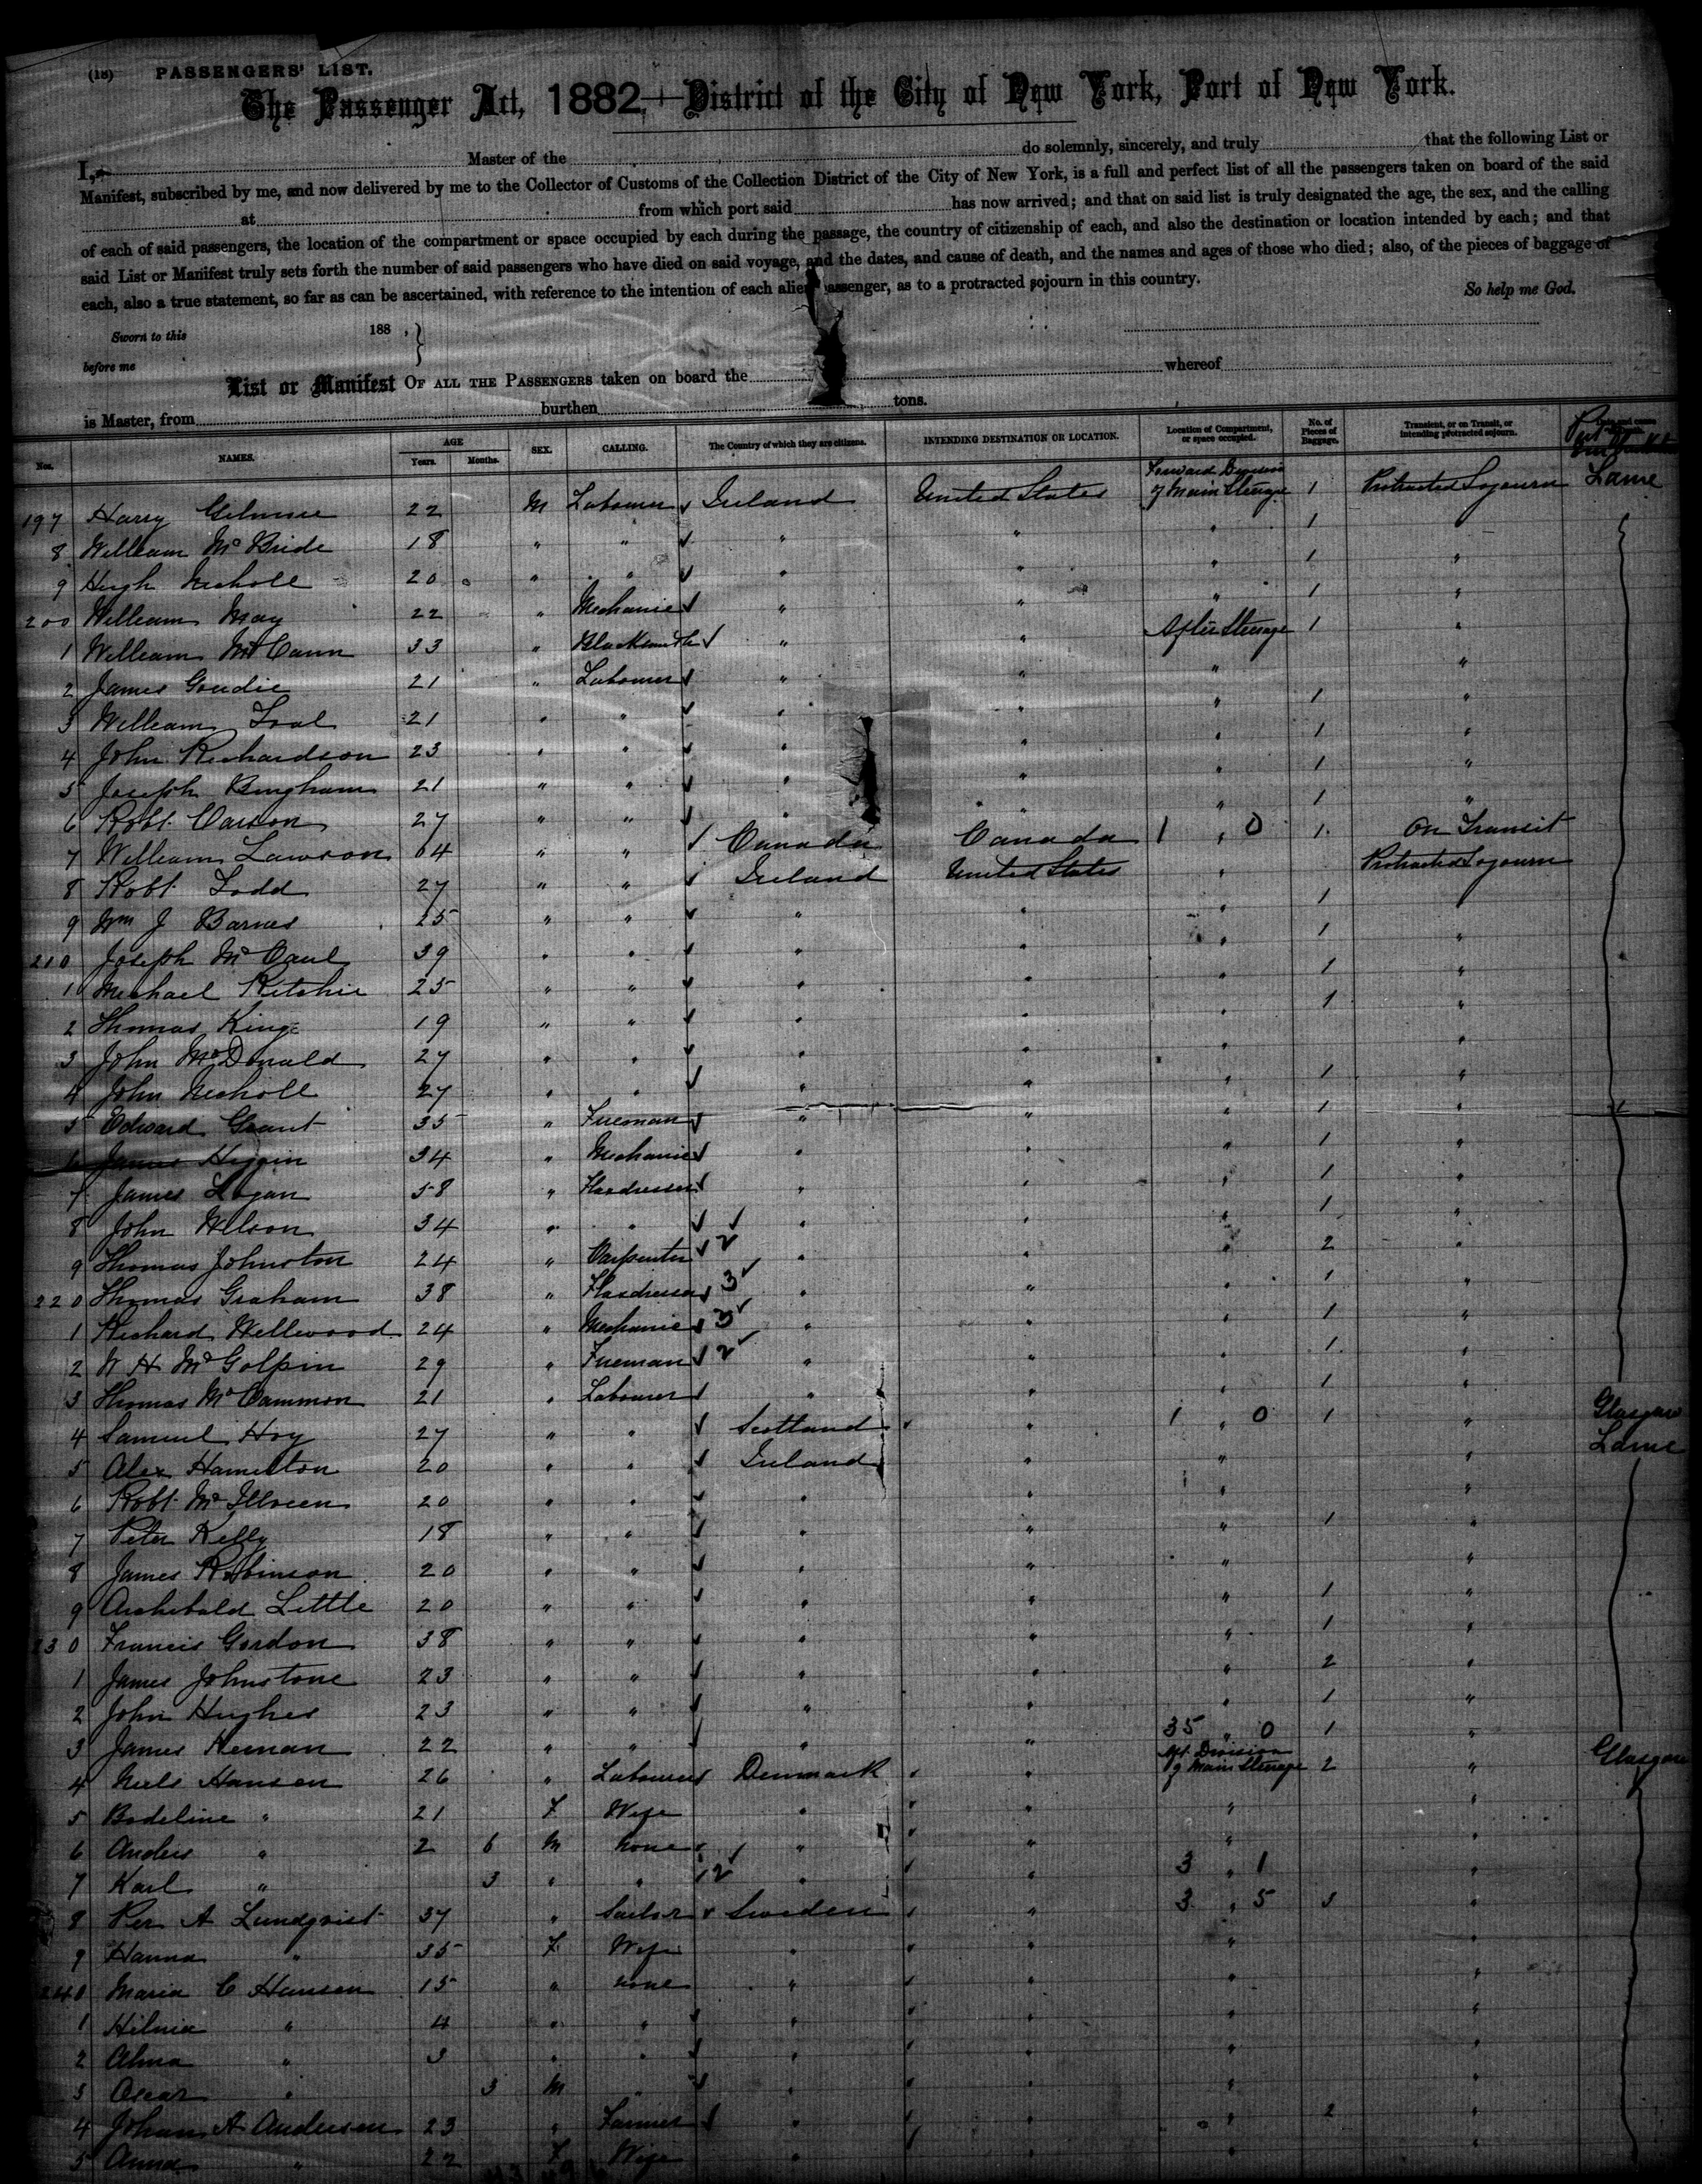 (18) PASSENGERS' LIST.
The Passenger Act, 1882—District of the City of New York, Port of New York.
I, Master of the do solemnly, sincerely, and truly that the following List or
Manifest, subscribed by me, and now delivered by me to the Collector of Customs of the Collection District of the City of New York, is a full and perfect list of all the passengers taken on board of the said
at from which port said has now arrived; and that on said list is truly designated the age, the sex, and the calling
of each of said passengers, the location of the compartment or space occupied by each during the passage, the country of citizenship of each, and also the destination or location intended by each; and that
said List or Manifest truly sets forth the number of said passengers who have died on said voyage, and the dates, and cause of death, and the names and ages of those who died; also, of the pieces of baggage of
each, also a true statement, so far as can be ascertained, with reference to the intention of each alien passenger, as to a protracted sojourn in this country. So help me God.
Sworn to this 188 ,
before me
List or Manifest OF ALL THE PASSENGERS taken on board the whereof
is Master, from burthen tons.
Nos. NAMES. AGE Years. Months. SEX. CALLING. The Country of which they are citizens. INTENDING DESTINATION OR LOCATION. Location of Compartment, or space occupied. No. of Pieces of Baggage. Transient, or on Transit, or intending protracted sojourn.
197 Harry Gilmore 22 M Labourer Ireland United States Forward Division of Main Steerage 1 Protracted Sojourn Larne
8 William McBride 18 " " " " " 1 "
9 Hugh Nicholl 20 " " " " " 1 "
200 William May 22 " Mechanic " " " 1 "
1 William McCann 33 " Blacksmith " " After Steerage 1 "
2 James Goudie 21 " Labourer " " " "
3 William Toal 21 " " " " " 1 "
4 John Richardson 23 " " " " " 1 "
5 Joseph Bingham 21 " " " " " 1 "
6 Robt. Carson 27 " " " " " 1 "
7 William Lawson 64 " " Canada Canada 1 " 0 1 On Transit
8 Robt. Todd 27 " " Ireland United States " Protracted Sojourn
9 Wm J Barnes 25 " " " " " 1 "
210 Joseph McCaul 39 " " " " " 1 "
1 Michael Ritchie 25 " " " " " 1 "
2 Thomas King 19 " " " " " 1 "
3 John McDonald 27 " " " " " "
4 John Nicholl 27 " " " " " 1 "
5 Edward Grant 35 " Fireman " " " 1 "
6 James Higgin 34 " Mechanic " " " 1 "
7 James Logan 58 " Flaxdresser " " " 1 "
8 John Wilson 34 " " " " " 1 "
9 Thomas Johnston 24 " Carpenter 2 " " " 2 "
220 Thomas Graham 38 " Flaxdresser 3 " " " 1 "
1 Richard Wellwood 24 " Mechanic 3 " " " 1 "
2 W H McGolpin 29 " Fireman 2 " " " 1 "
3 Thomas McCammon 21 " Labourer " " " 1 "
4 Samuel Hoy 27 " " Scotland " 1 " 0 1 " Glasgow
5 Alex Hamilton 20 " " Ireland " " " Larne
6 Robt. McIlveen 20 " " " " " "
7 Peter Kelly 18 " " " " " 1 "
8 James Robinson 20 " " " " " "
9 Archibald Little 20 " " " " " 1 "
230 Francis Gordon 38 " " " " " 1 "
1 James Johnstone 23 " " " " " 2 "
2 John Hughes 23 " " " " " 1 "
3 James Kernan 22 " " " " 35 " 0 1 "
4 Niels Hansen 26 " Labourer Denmark " Aft. Division of Main Steerage 2 " Glasgow
5 Bodeline " 21 F Wife " " " "
6 Anders " 2 6 M none " " " "
7 Karl " 3 " " 2 " " 3 " 1 "
8 Per A Lundqvist 37 " Sailor Sweden " 3 " 5 3 "
9 Hanna " 35 F Wife " " " "
240 Maria C Hansen 15 " none " " " "
1 Hilma " 4 " " " " " "
2 Alma " 3 " " " " " "
3 Oscar " 3 M " " " " "
4 Johan A Andersen 23 " Farmer " " " 2 "
5 Anna " 22 F Wife " " " "